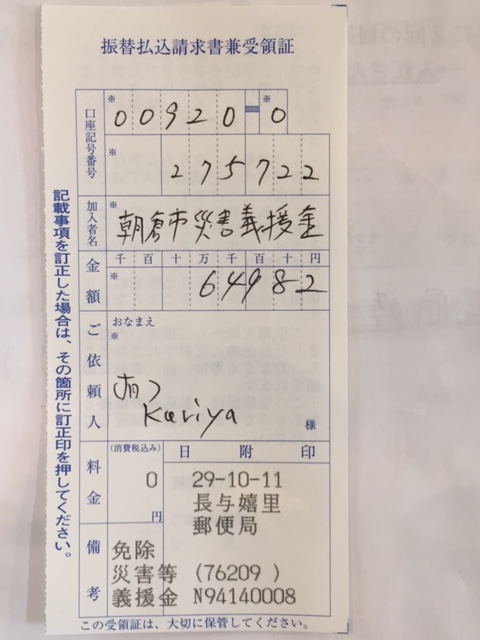 振替払込請求書兼受領証
口座記号番号
※
00920-0
※
※
275722
加入者名
※
朝倉市災害義援金
金額
千百十万千百十円
※
64982
ご依頼人
おなまえ
※
Kariya
様
料金
(消費税込み)
0
円
日附印
29-10-11
長与嬉里
郵便局
備考
免除
災害等 (76209 )
義援金 N94140008
この受領証は、大切に保管してください。
記載事項を訂正した場合は、その箇所に訂正印を押してください。